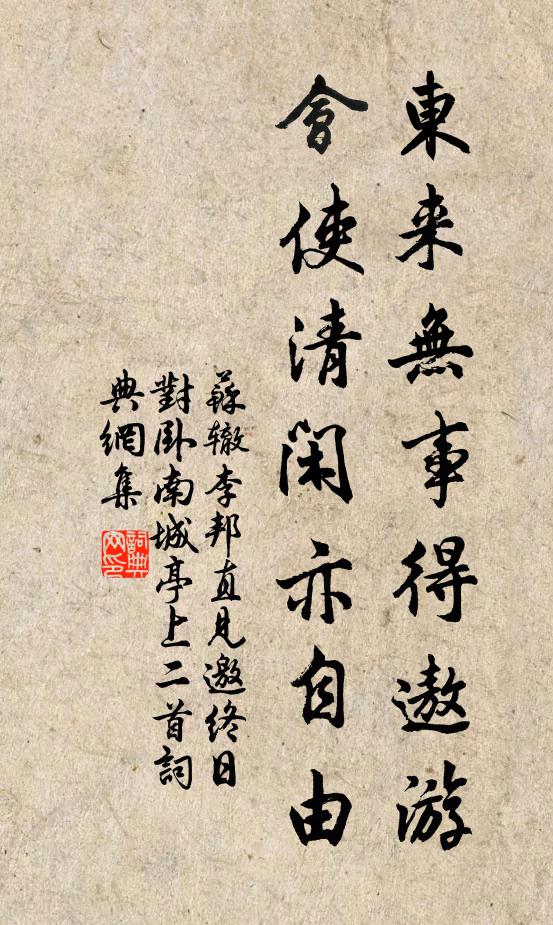 東来無事得遨游
會使清閑亦自由
蘇辙李邦直見邀終日
對卧南城亭上二首詞
典網集
詞典网印